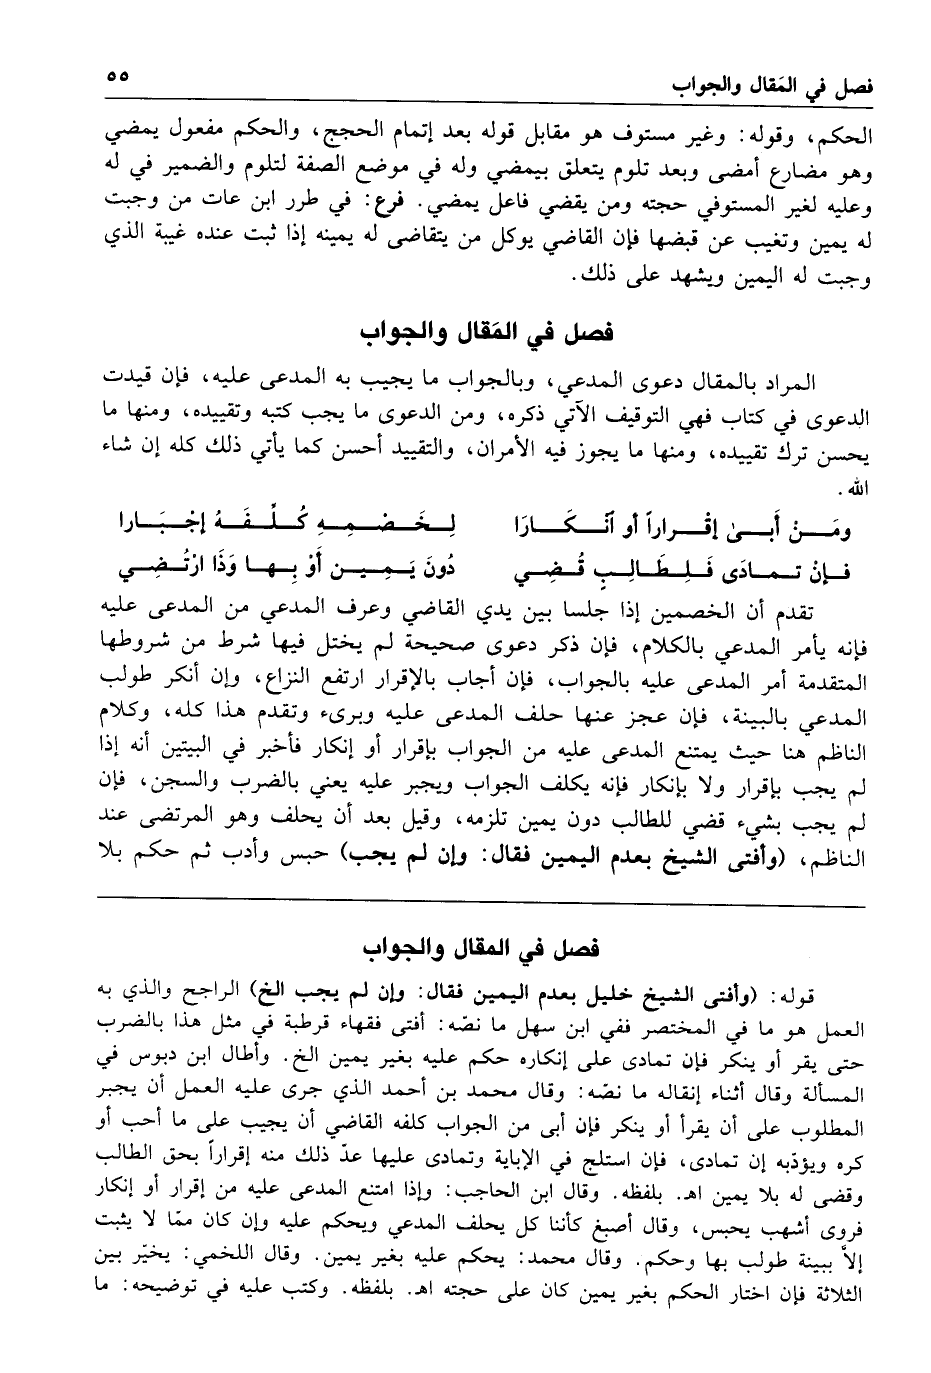 فصل في المَقال والجواب
٥٥
الحكم، وقوله: وغير مستوف هو مقابل قوله بعد إتمام الحجج، والحكم مفعول يمضي
وهو مضارع أمضى وبعد تلوم يتعلق بيمضي وله في موضع الصفة لتلوم والضمير في له
وعليه لغير المستوفي حجته ومن يقضي فاعل يمضي. فرع: في طرر ابن عات من وجبت
له يمين وتغيب عن قبضها فإن القاضي يوكل من يتقاضى له يمينه إذا ثبت عنده غيبة الذي
وجبت له اليمين ويشهد على ذلك.
فصل في المَقال والجواب
المراد بالمقال دعوى المدعي، وبالجواب ما يجيب به المدعى عليه، فإن قيدت
الدعوى في كتاب فهي التوقيف الآتي ذكره، ومن الدعوى ما يجب كتبه وتقييده، ومنها ما
يحسن ترك تقييده، ومنها ما يجوز فيه الأمران، والتقييد أحسن كما يأتي ذلك كله إن شاء
الله.
ومَـنْ أَبـى إقْـراراً أو آنْـكَـارَا لِـخَـصْـمِـهِ كُـلِّـفَـهُ إجْـبَـارا
فـإنْ تـمـادَى فَـلِـطَـالِـبٍ قُـضِـي دُونَ يَـمِـيـنٍ أوْ بِـهـا وَذَا ارْتُـضِـي
تقدم أن الخصمين إذا جلسا بين يدي القاضي وعرف المدعي من المدعى عليه
فإنه يأمر المدعي بالكلام، فإن ذكر دعوى صحيحة لم يختل فيها شرط من شروطها
المتقدمة أمر المدعى عليه بالجواب، فإن أجاب بالإقرار ارتفع النزاع، وإن أنكر طولب
المدعي بالبينة، فإن عجز عنها حلف المدعى عليه وبرىء وتقدم هذا كله، وكلام
الناظم هنا حيث يمتنع المدعى عليه من الجواب بإقرار أو إنكار فأخبر في البيتين أنه إذا
لم يجب بإقرار ولا بإنكار فإنه يكلف الجواب ويجبر عليه يعني بالضرب والسجن، فإن
لم يجب بشيء قضي للطالب دون يمين تلزمه، وقيل بعد أن يحلف وهو المرتضى عند
الناظم، (وأفتى الشيخ بعدم اليمين فقال: وإن لم يجب) حبس وأدب ثم حكم بلا
فصل في المقال والجواب
قوله: (وأفتى الشيخ خليل بعدم اليمين فقال: وإن لم يجب الخ) الراجح والذي به
العمل هو ما في المختصر ففي ابن سهل ما نصّه: أفتى فقهاء قرطبة في مثل هذا بالضرب
حتى يقر أو ينكر فإن تمادى على إنكاره حكم عليه بغير يمين الخ. وأطال ابن دبوس في
المسألة وقال أثناء إنقاله ما نصّه: وقال محمد بن أحمد الذي جرى عليه العمل أن يجبر
المطلوب على أن يقرأ أو ينكر فإن أبى من الجواب كلفه القاضي أن يجيب على ما أحب أو
كره ويؤدّبه إن تمادى، فإن استلج في الإباية وتمادى عليها عدّ ذلك منه إقراراً بحق الطالب
وقضى له بلا يمين اهـ. بلفظه. وقال ابن الحاجب: وإذا امتنع المدعى عليه من إقرار أو إنكار
فروى أشهب يحبس، وقال أصبغ كأننا كل يحلف المدعي ويحكم عليه وإن كان ممّا لا يثبت
إلاّ ببينة طولب بها وحكم. وقال محمد: يحكم عليه بغير يمين. وقال اللخمي: يخيّر بين
الثلاثة فإن اختار الحكم بغير يمين كان على حجته اهـ. بلفظه. وكتب عليه في توضيحه: ما